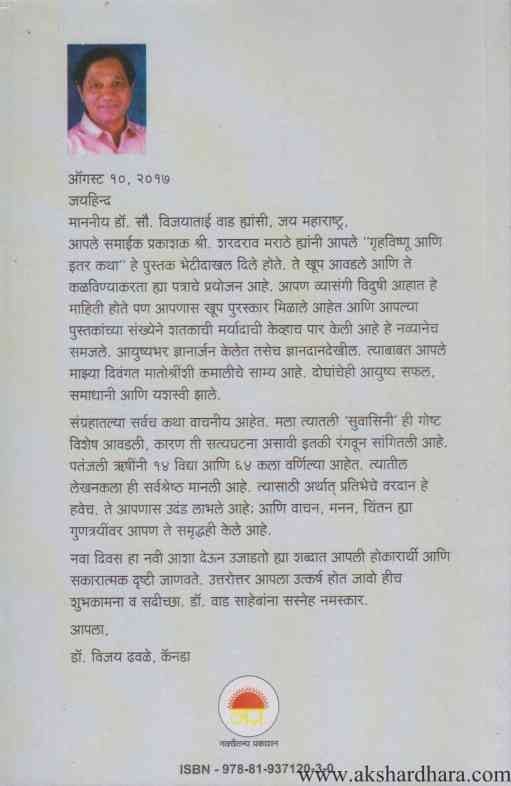 ऑगस्ट १०, २०१७
जयहिन्द
माननीय डॉ. सौ. विजयाताई वाड ह्यांसी, जय महाराष्ट्र,
आपले समाईक प्रकाशक श्री. शरदराव मराठे ह्यांनी आपले "गृहविष्णू आणि
इतर कथा" हे पुस्तक भेटीदाखल दिले होते. ते खूप आवडले आणि ते
कळविण्याकरता ह्या पत्राचे प्रयोजन आहे. आपण व्यासंगी विदुषी आहात हे
माहिती होते पण आपणास खूप पुरस्कार मिळाले आहेत आणि आपल्या
पुस्तकांच्या संख्येने शतकाची मर्यादाची केव्हाच पार केली आहे हे नव्यानेच
समजले. आयुष्यभर ज्ञानार्जन केलेत तसेच ज्ञानदानदेखील. त्याबाबत आपले
माझ्या दिवंगत मातोश्रींशी कमालीचे साम्य आहे. दोघांचेही आयुष्य सफल,
समाधानी आणि यशस्वी झाले.
संग्रहातल्या सर्वच कथा वाचनीय आहेत. मला त्यातली 'सुवासिनी' ही गोष्ट
विशेष आवडली, कारण ती सत्यघटना असावी इतकी रंगवून सांगितली आहे.
पतंजली ऋषींनी १४ विद्या आणि ६४ कला वर्णिल्या आहेत. त्यातील
लेखनकला ही सर्वश्रेष्ठ मानली आहे. त्यासाठी अर्थात् प्रतिभेचे वरदान हे
हवेच. ते आपणास उदंड लाभले आहे; आणि वाचन, मनन, चिंतन ह्या
गुणत्रयींवर आपण ते समृद्धही केले आहे.
नवा दिवस हा नवी आशा देऊन उजाडतो ह्या शब्दात आपली होकारार्थी आणि
सकारात्मक दृष्टी जाणवते. उत्तरोत्तर आपला उत्कर्ष होत जावो हीच
शुभकामना व सदीच्छा. डॉ. वाड साहेबांना सस्नेह नमस्कार.
आपला,
डॉ. विजय ढवळे, कॅनडा
नवचैतन्य प्रकाशन
ISBN - 978-81-937120-3-0
www.akshardhara.com